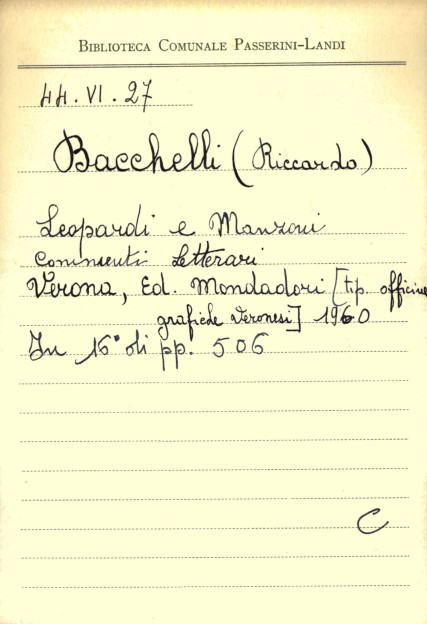 BIBLIOTECA COMUNALE PASSERINI-LANDI
44.VI.27
Bacchelli (Riccardo)
Leopardi e Manzoni
Commenti Letterari
Verona, Ed. Mondadori [tip. officine
grafiche Veronesi] 1960
In 16° di pp. 506
C